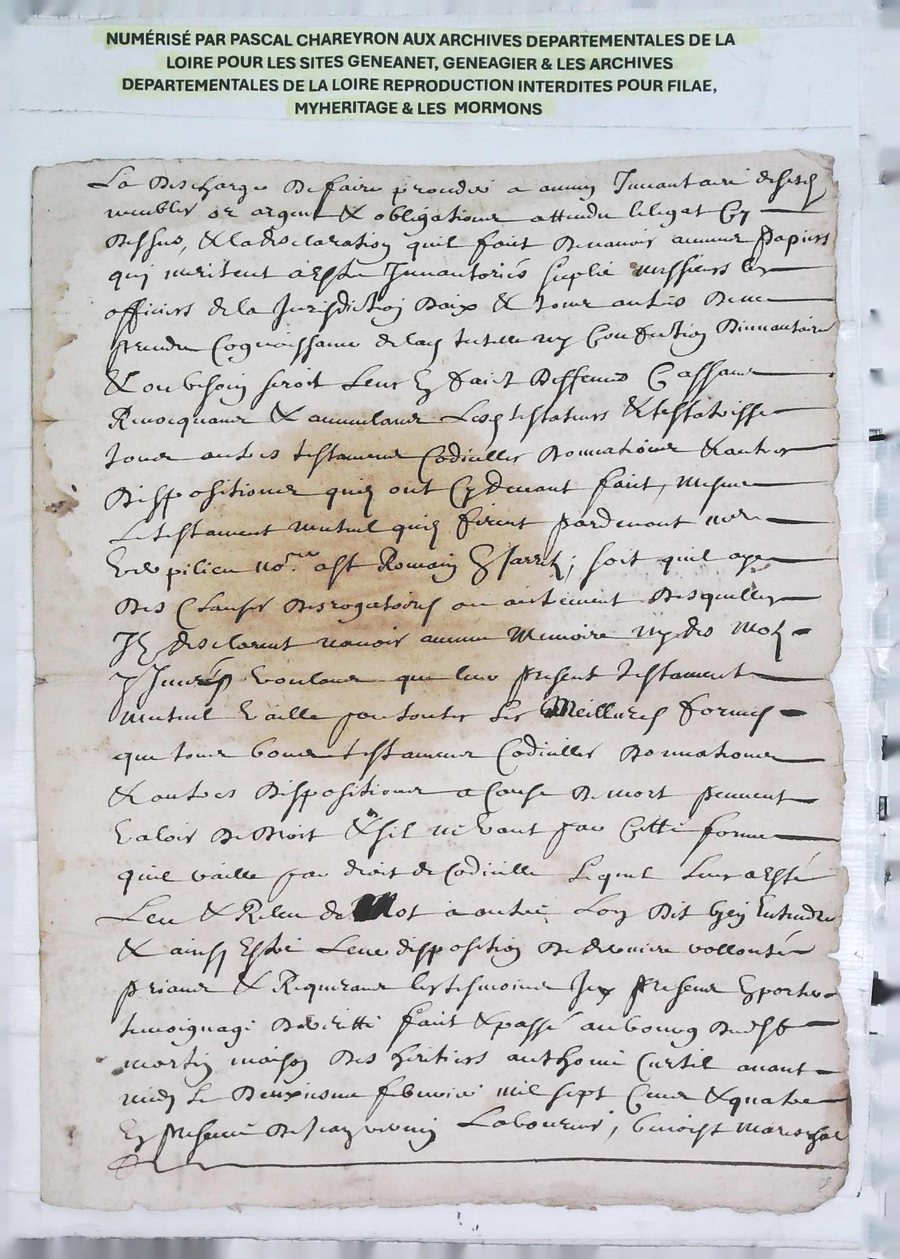 NUMÉRISÉ PAR PASCAL CHAREYRON AUX ARCHIVES DEPARTEMENTALES DE LA
LOIRE POUR LES SITES GENEANET, GENEAGIER & LES ARCHIVES
DEPARTEMENTALES DE LA LOIRE REPRODUCTION INTERDITES POUR FILAE,
MYHERITAGE & LES MORMONS
La descharge de faire proceder a aucun Inuantaire de ses
meubles or argent & obligations attendu le legat cy
dessus, & la desclaration quil fait de nauoir aucuns papiers
qui meritent destre Inuantoriés suplie messieurs les
officiers de la Jurisdiction Daix & tous autres de ne
prendre Cognoissance de lad tutelle ny Confection Dinuantaire
& ou besoin seroit Leur En faict deffences Cassant
Reuocquant & annulant Lesd testateurs & testatrisse
tous autres testament Codicilles donnations & autres
dispositions quilz ont Cy deuant fait, mesme
Le testament mutuel quilz firent pardeuant
pilieu no.re a St Romain En Jarretz, soit quil aye
des Clauses desrogatoires ou autrement desquelles
Ilz desclarent nauoir aucune Memoire ny des Motz
y Inserés Voulant que leur present testament
mutuel Vaille par toutes les Meilleures formes
que tous bons testament Codicilles donnations
& autres dispositions a Cause de mort peuuent
Valoir de droit & sil ne Vaut par Cette forme
quil vaille par droit de Codicille Lequel Leur a Esté
Leu & Releu de Mot a autre Lont dit bien Entendre
& ainsy Estre Leur disposition de derniere vollonté
priant & Requerant les tesmoins Icy presens En porter
temoignage de Veritté fait & passé au bourg dud St
martin maison des heritiers anthoine Curtil auant
midy Le deuxiesme feburier mil sept Cent & quatre
En presence de Laboureur, benoist mareschal